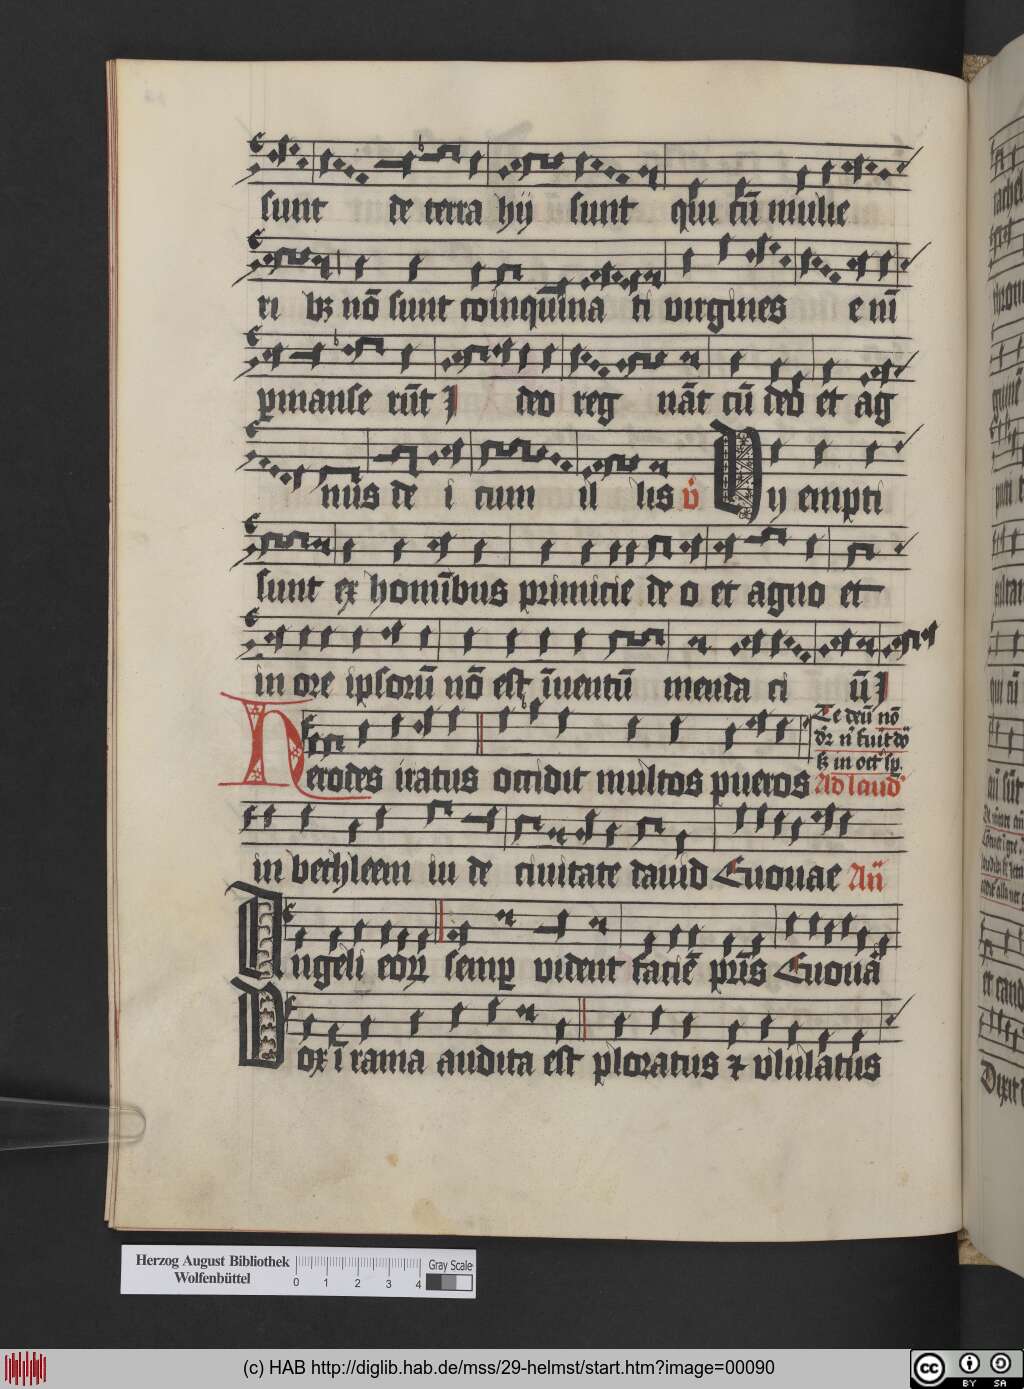 sunt de terra hij sunt qui cū mulie
ri bꝫ nō sunt coinquīna ti virgines e nī
ꝑmanse rūt I deo reg nāt cū deo et ag
nus de i cum il lis v̓ Hij empti
sunt ex homībus primicie de o et agno et
in ore ipsorū nō est īuentū menda ci ū I
Te deū nō
in octͣ
Herodes iratus occidit multos pueros Ad laudͤ
in bethleem iu de ciuitate dauid Euouae An̄
Angeli eoꝝ semꝑ vident faciē pr̄is Euouā
Vox ī rama audita est ploratus ⁊ vlulatus
Herzog August Bibliothek
Wolfenbüttel
0 1 2 3 4
Gray Scale
(c) HAB http://diglib.hab.de/mss/29-helmst/start.htm?image=00090
cc BY SA